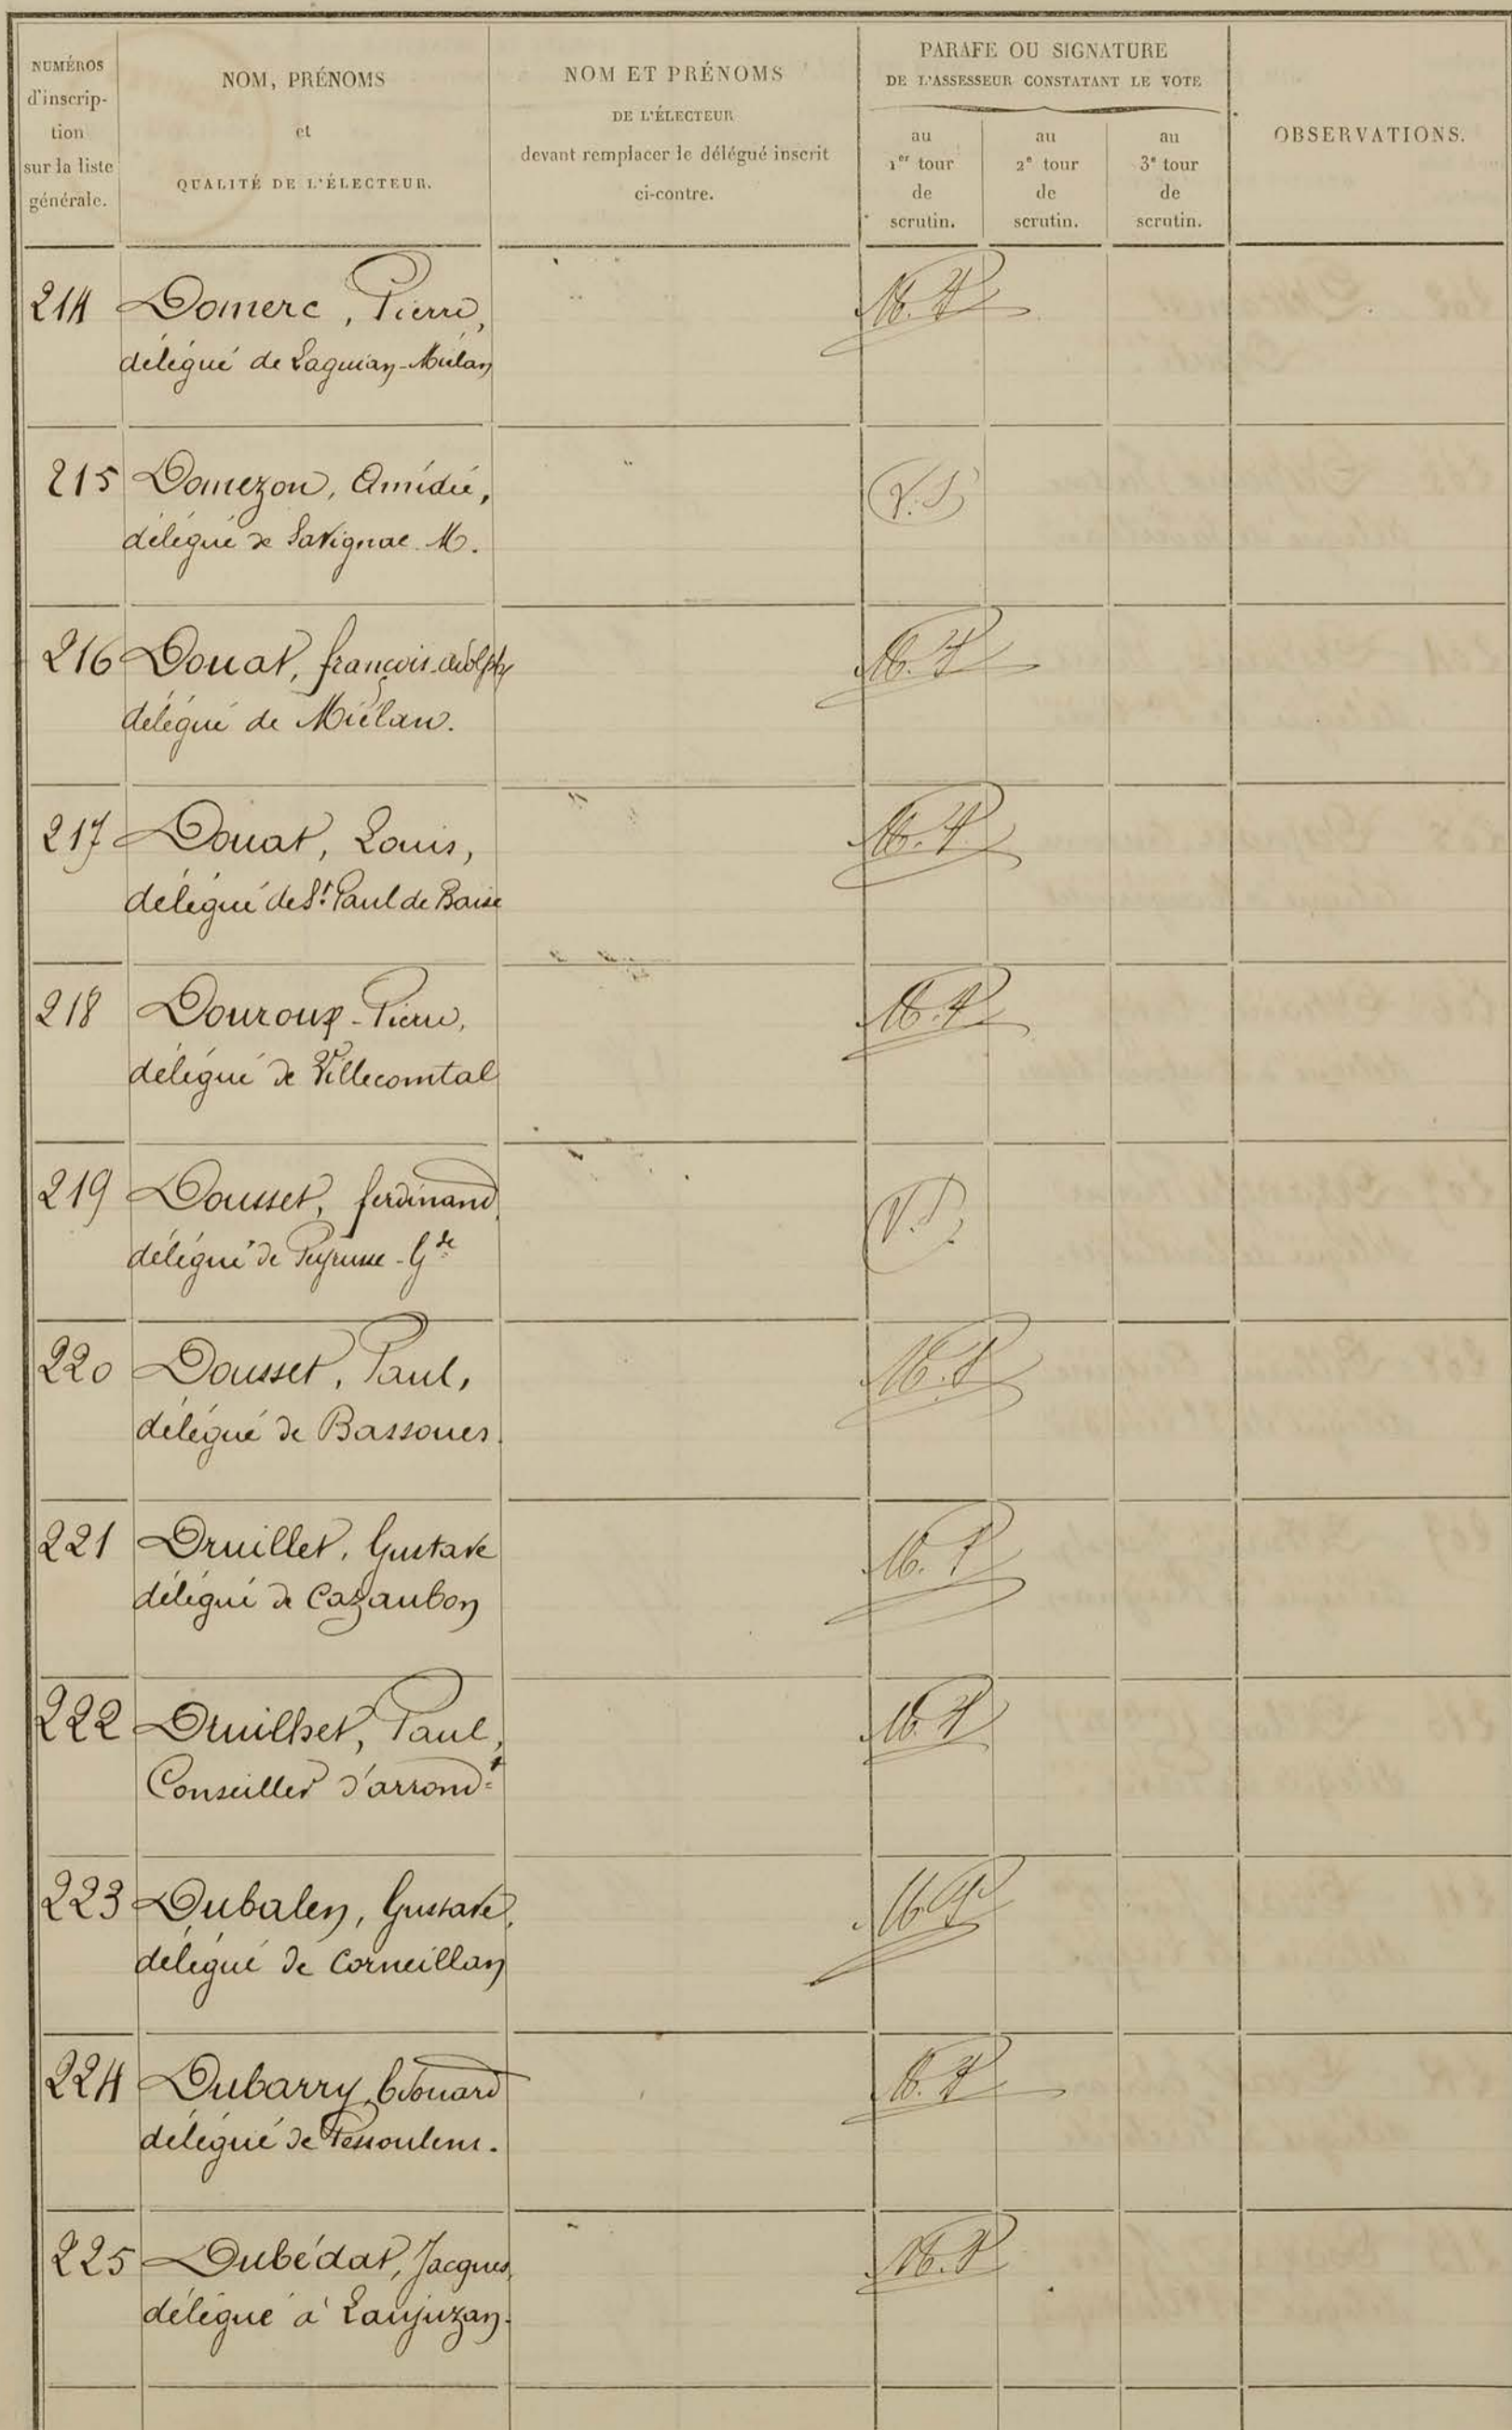 NUMÉROS
d'inscrip-
tion
sur la liste
générale.
NOM, PRÉNOMS
et
QUALITÉ DE L'ÉLECTEUR.
NOM ET PRÉNOMS
DE L'ÉLECTEUR
devant remplacer le délégué inscrit
ci-contre.
PARAFE OU SIGNATURE
DE L'ASSESSEUR CONSTATANT LE VOTE
au
1er tour
de
scrutin.
au
2e tour
de
scrutin.
au
3e tour
de
scrutin.
OBSERVATIONS.
214 Domerc, Pierre,
délégué de Laguian-Miélan
215 Domezon, Amédée,
délégué de Savignac M.
216 Douat, françois
délégué de Miélan.
217 Douat, Louis,
délégué de St. Paul de Baise
218 Douroux-Pierre,
délégué de Villecomtal
219 Dousset, ferdinand,
délégué de Peyrusse-Gde
220 Dousset, Paul,
délégué de Bassoues.
221 Druillet, Gustave
délégué de Cazaubon
222 Druilhet, Paul,
Conseiller d'arrondt
223 Dubalen, Gustave,
délégué de Corneillan
224 Dubarry, Edouard
délégué de Pessoulens.
225 Dubédat, Jacques,
délégué à Laujuzan.